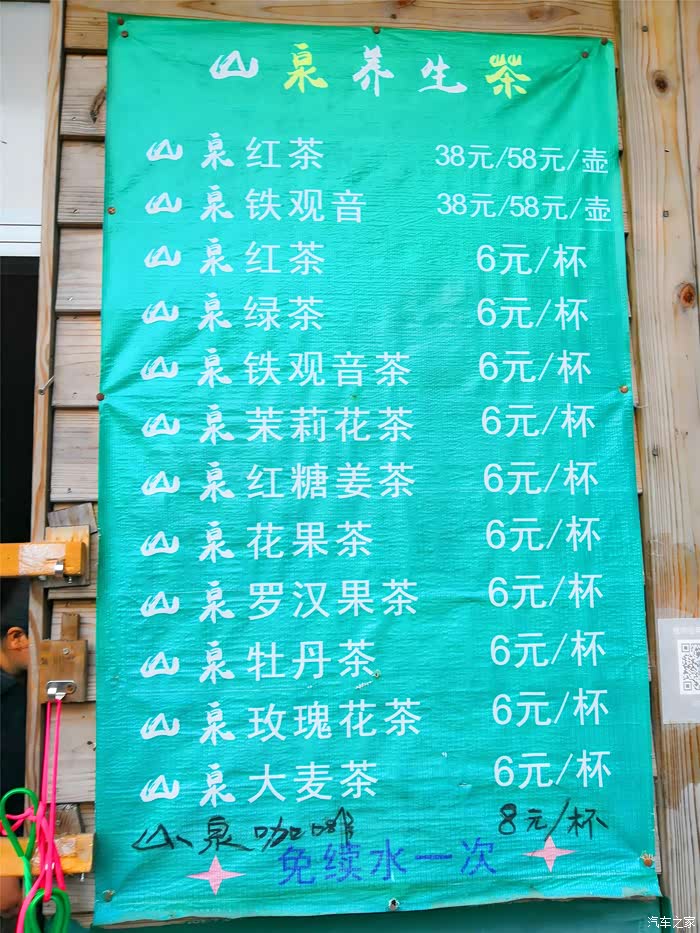 山泉养生茶
山泉红茶 38元/58元/壶
山泉铁观音 38元/58元/壶
山泉红茶 6元/杯
山泉绿茶 6元/杯
山泉铁观音茶 6元/杯
山泉茉莉花茶 6元/杯
山泉红糖姜茶 6元/杯
山泉花果茶 6元/杯
山泉罗汉果茶 6元/杯
山泉牡丹茶 6元/杯
山泉玫瑰花茶 6元/杯
山泉大麦茶 6元/杯
山泉咖啡 8元/杯
免续水一次
汽车之家